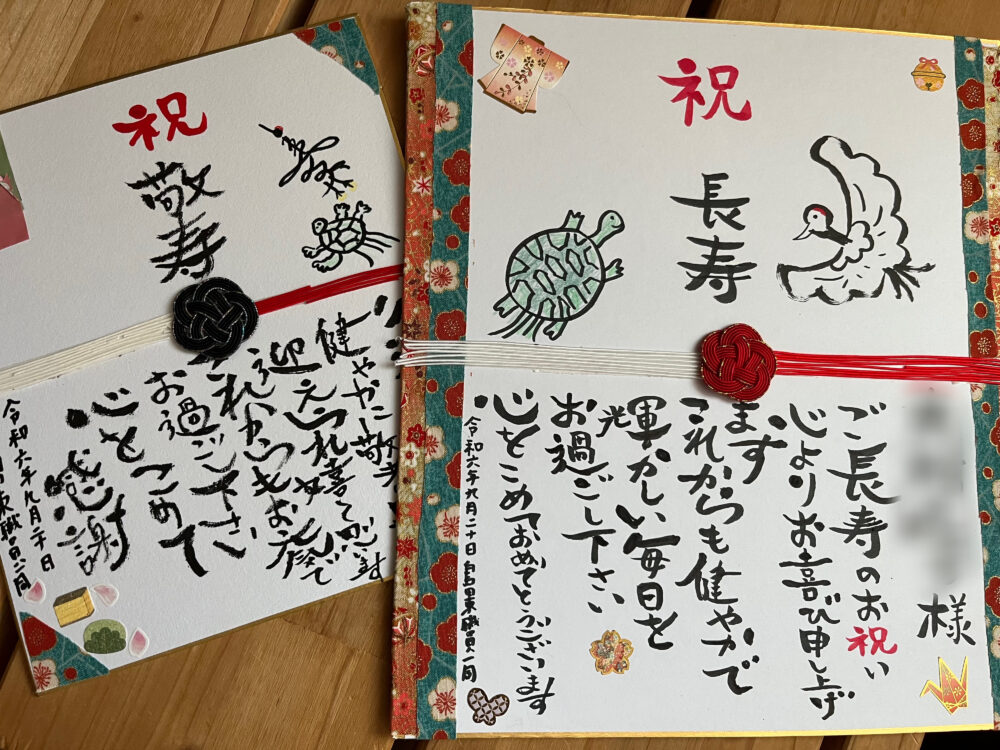 祝
長寿
様
ご長寿のお祝い
心よりお喜び申し上げ
ます
これからも健やかで
輝かしい毎日を
お過ごし下さい
心をこめておめでとうございます
令和六年九月二十日 東職員一同
祝
敬寿
健やかに敬
迎えられ
これからもお元気で
お過ごし下さい
心をこめて
感謝
令和六年九月二十日
東職員一同